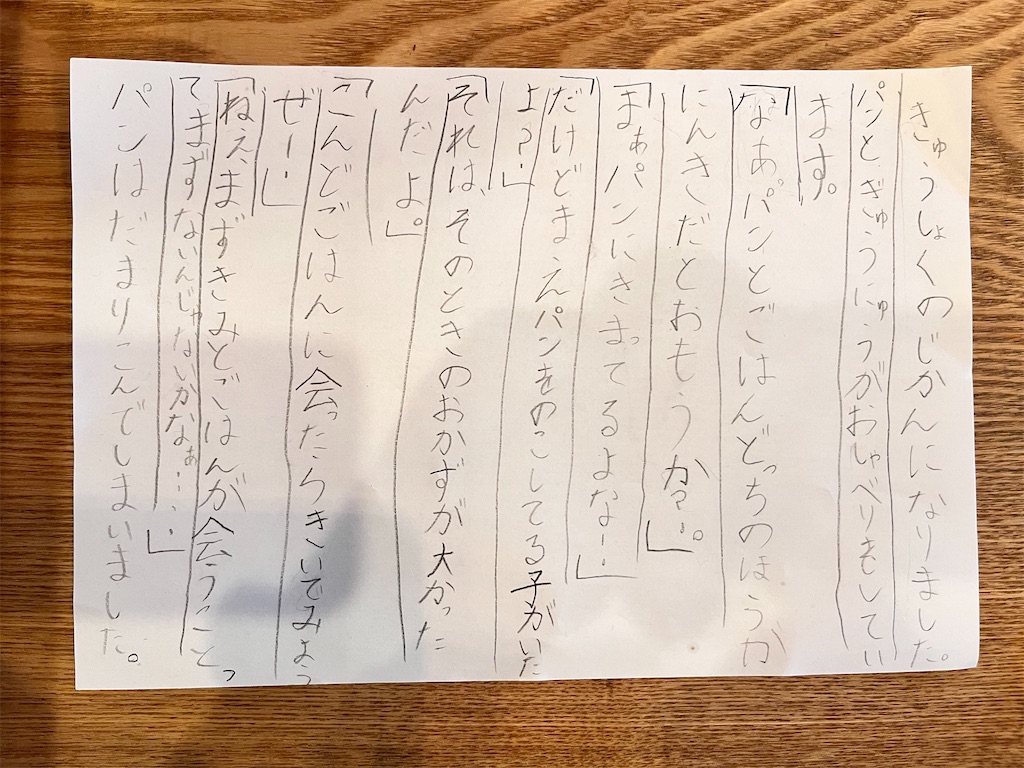 きゅうしょくのじかんになりました。
パンとぎゅうにゅうがおしゃべりをしてい
ます。
「なあパンとごはんどっちのほうが
にんきだとおもうか?」。
「まぁパンにきまってるよなー」
「だけどまえパンをのこしてる子がいた
よ?」
「それは、そのときのおかずが大かった
んだよ。」
「こんどごはんに会ったらきいてみよっ
ぜー」
「ねえ、まずきみとごはんが会うことっ
てまずないんじゃないかなぁ……」
パンはだまりこんでしまいました。